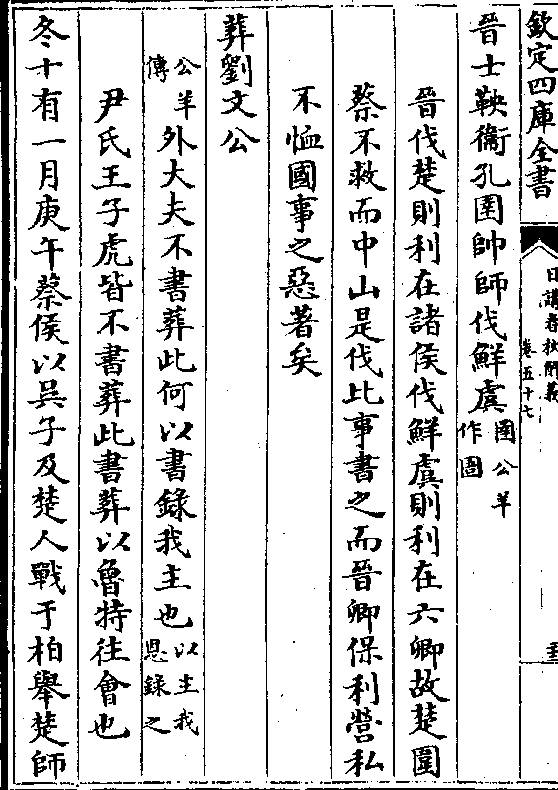 欽定四庫全書
日講春秋解義
卷五十七
晉士鞅衛孔圉帥師伐鮮虞圉公羊作圄
晉伐楚則利在諸侯伐鮮虞則利在六卿故楚圍
蔡不救而中山是伐比事書之而晉卿保利營私
不恤國事之惡著矣
葬劉文公
公羊傳外大夫不書葬此何以書錄我主也以主我恩錄之
尹氏王子虎皆不書葬此書葬以魯特往會也
冬十有一月庚午蔡侯以吳子及楚人戰于柏舉楚師